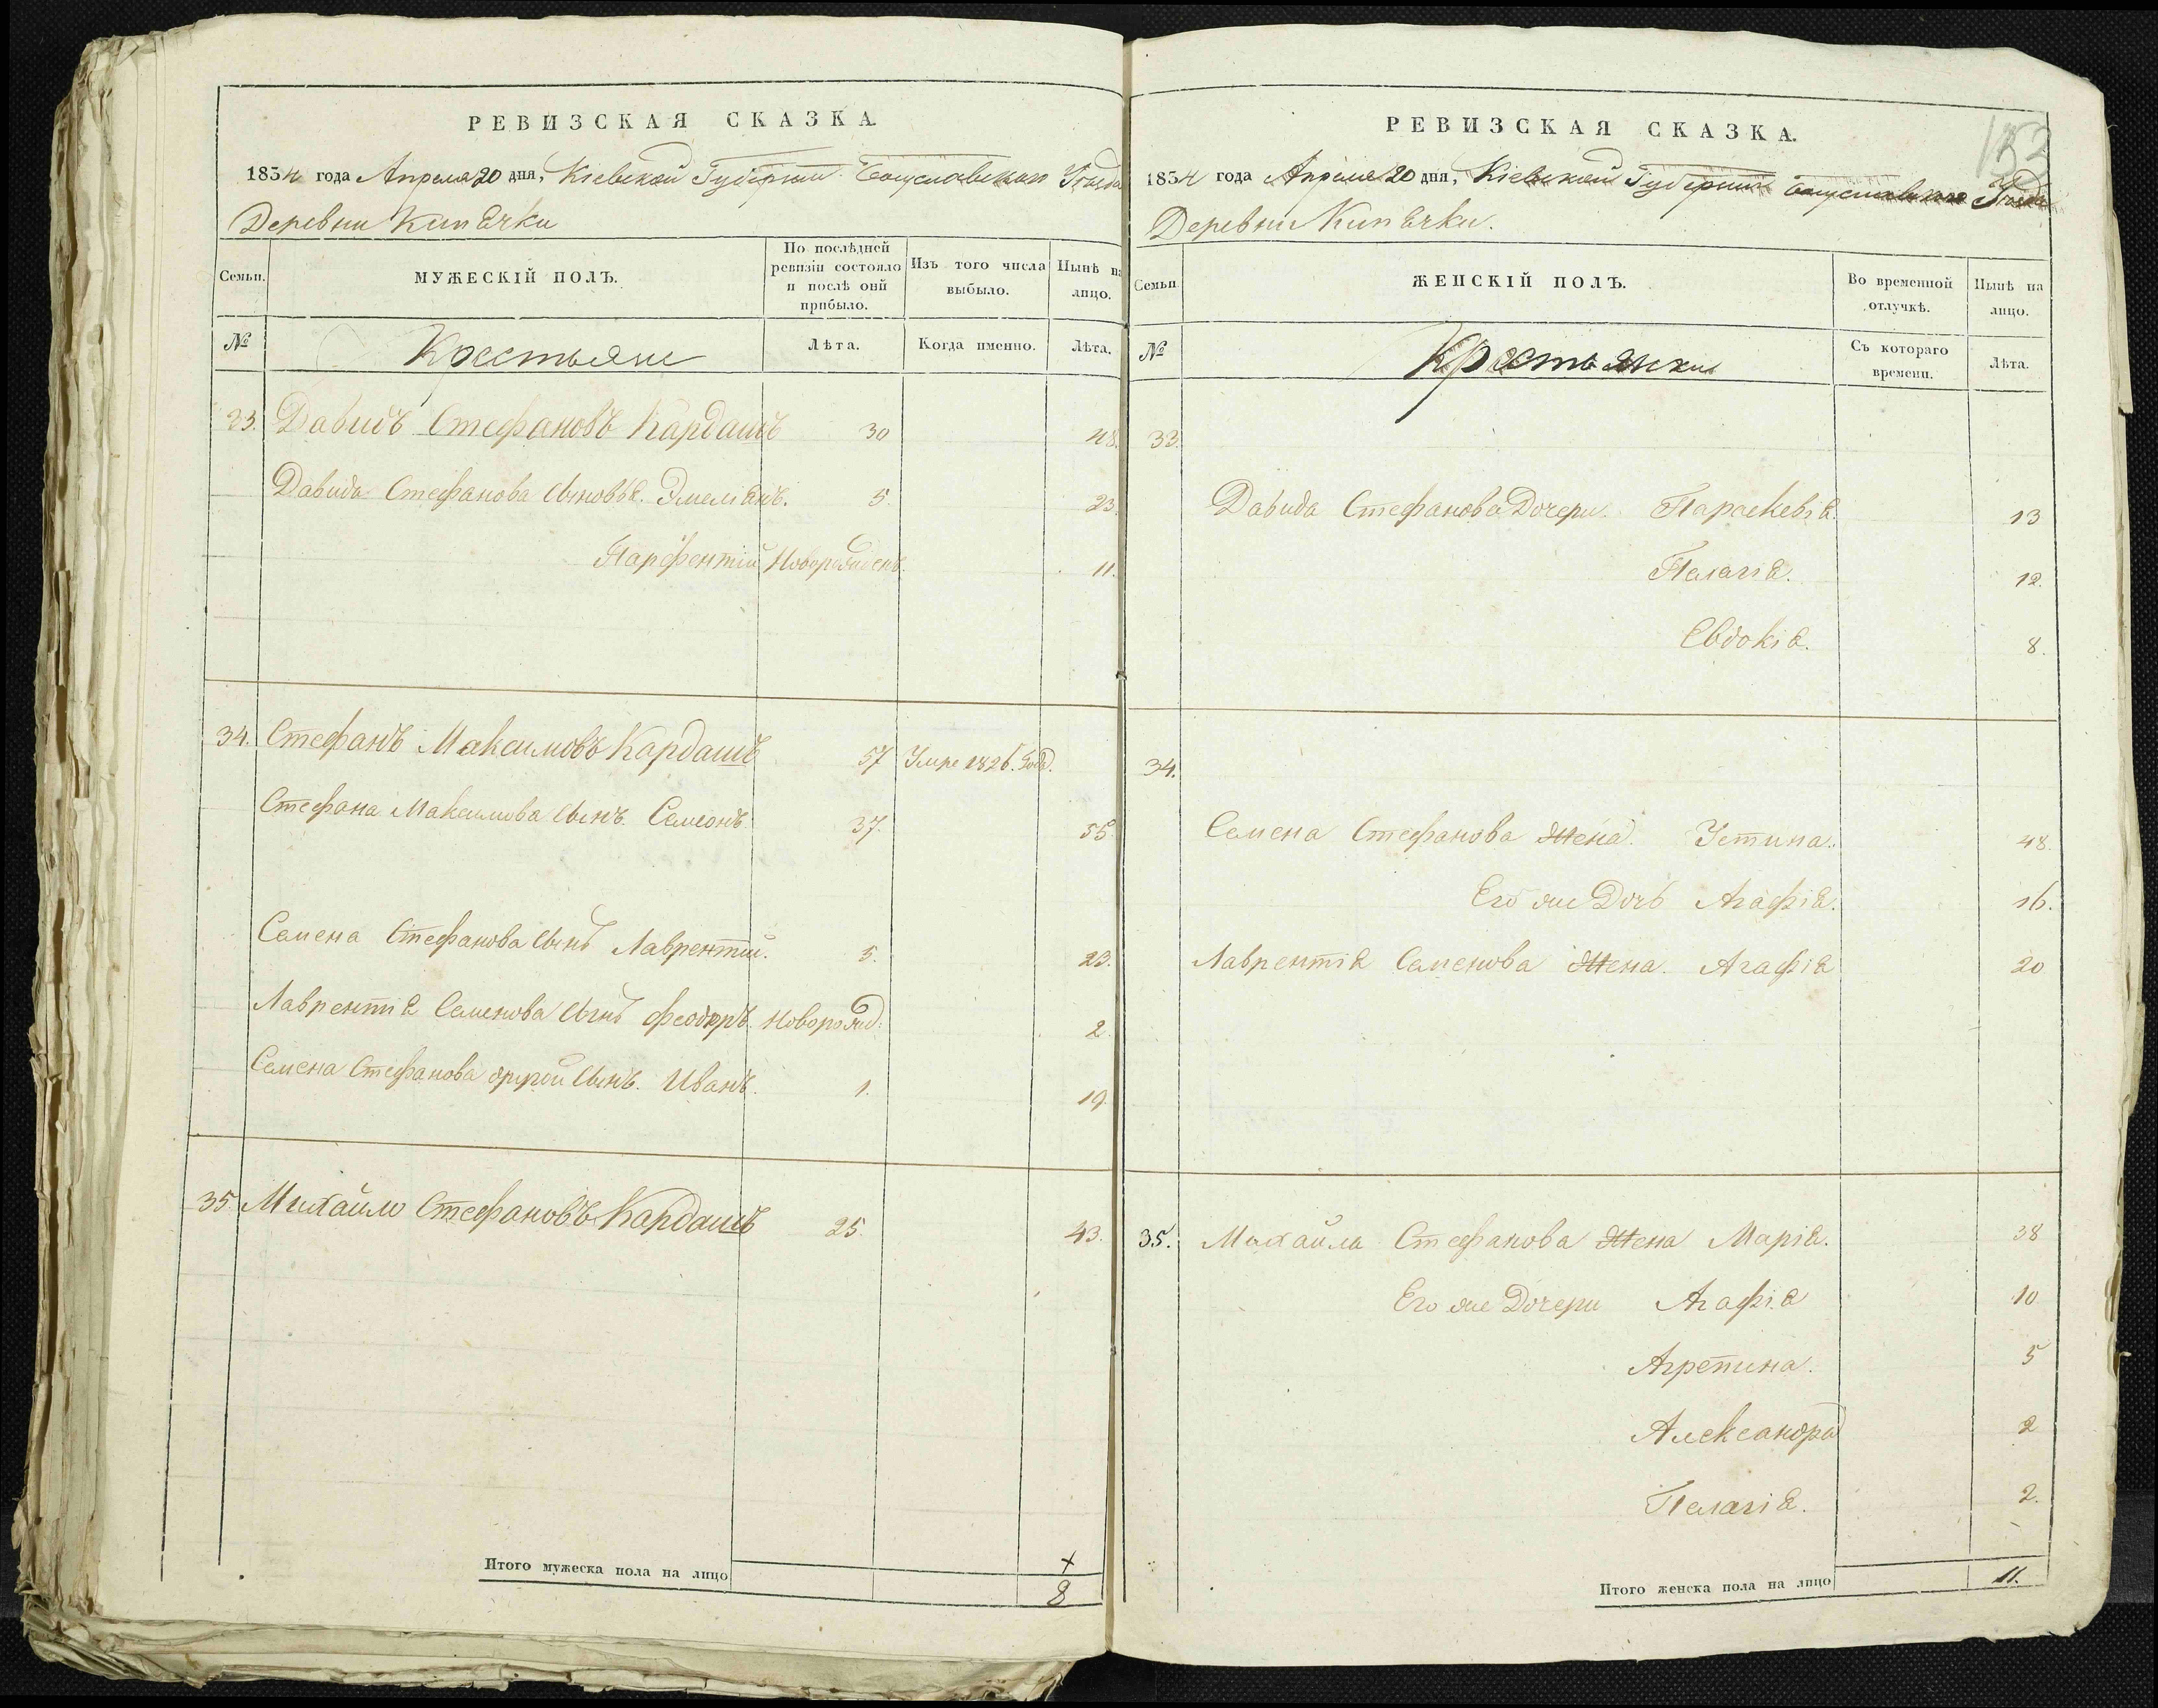 РЕВИЗСКАЯ СКАЗКА.
1834 года Апреля 20 дня, Кіевской Губерніи Богуславскаго Уѣзда
Деревни Кипячки
Семьи. МУЖЕСКІЙ ПОЛЪ. По послѣдней ревизіи состояло и послѣ оній прибыло. Изъ того числа выбыло. Нынѣ на лицо.
№ Крестьяне Лѣта. Когда именно. Лѣта.
23. Давидъ Стефановъ Кардашъ 30 48.
Давида Стефанова сыновья. Эмеліянъ. 5. 23.
Парфентій Новорожденъ. 11.
34. Стефанъ Максимовъ Кардашъ 57 Умре 1826. Года.
Стефана Максимова сынъ. Семіонъ. 37. 55
Семена Стефанова сынъ Лаврентій. 5. 23.
Лаврентія Семенова сынъ Феодоръ. Новорожд: 2
Семена Стефанова другой сынъ. Иванъ. 1. 19.
35. Михайло Стефановъ Кардашъ 25. 43.
Итого мужеска пола на лицо 8
РЕВИЗСКАЯ СКАЗКА.
1834 года Апреля 20 дня, Кіевской Губерніи Богуславскаго Уѣзда
Деревни Кипячки.
Семьи ЖЕНСКІЙ ПОЛЪ. Во временной отлучкѣ. Нынѣ на лицо.
№ Крестьянки Съ котораго времени. Лѣта.
33.
Давида Стефанова Дочери Параскевія. 13
Пелагія. 12.
Евдокія. 8.
34.
Семена Стефанова Жена. Устина. 48.
Его же Дочь Агафія. 16.
Лаврентія Семенова Жена. Агафія 20
35. Михайла Стефанова Жена Марія. 38
Его же Дочери Агафія 10
Агрепина. 5
Александра 2
Пелагія. 2.
Итого женска пола на лицо 11.